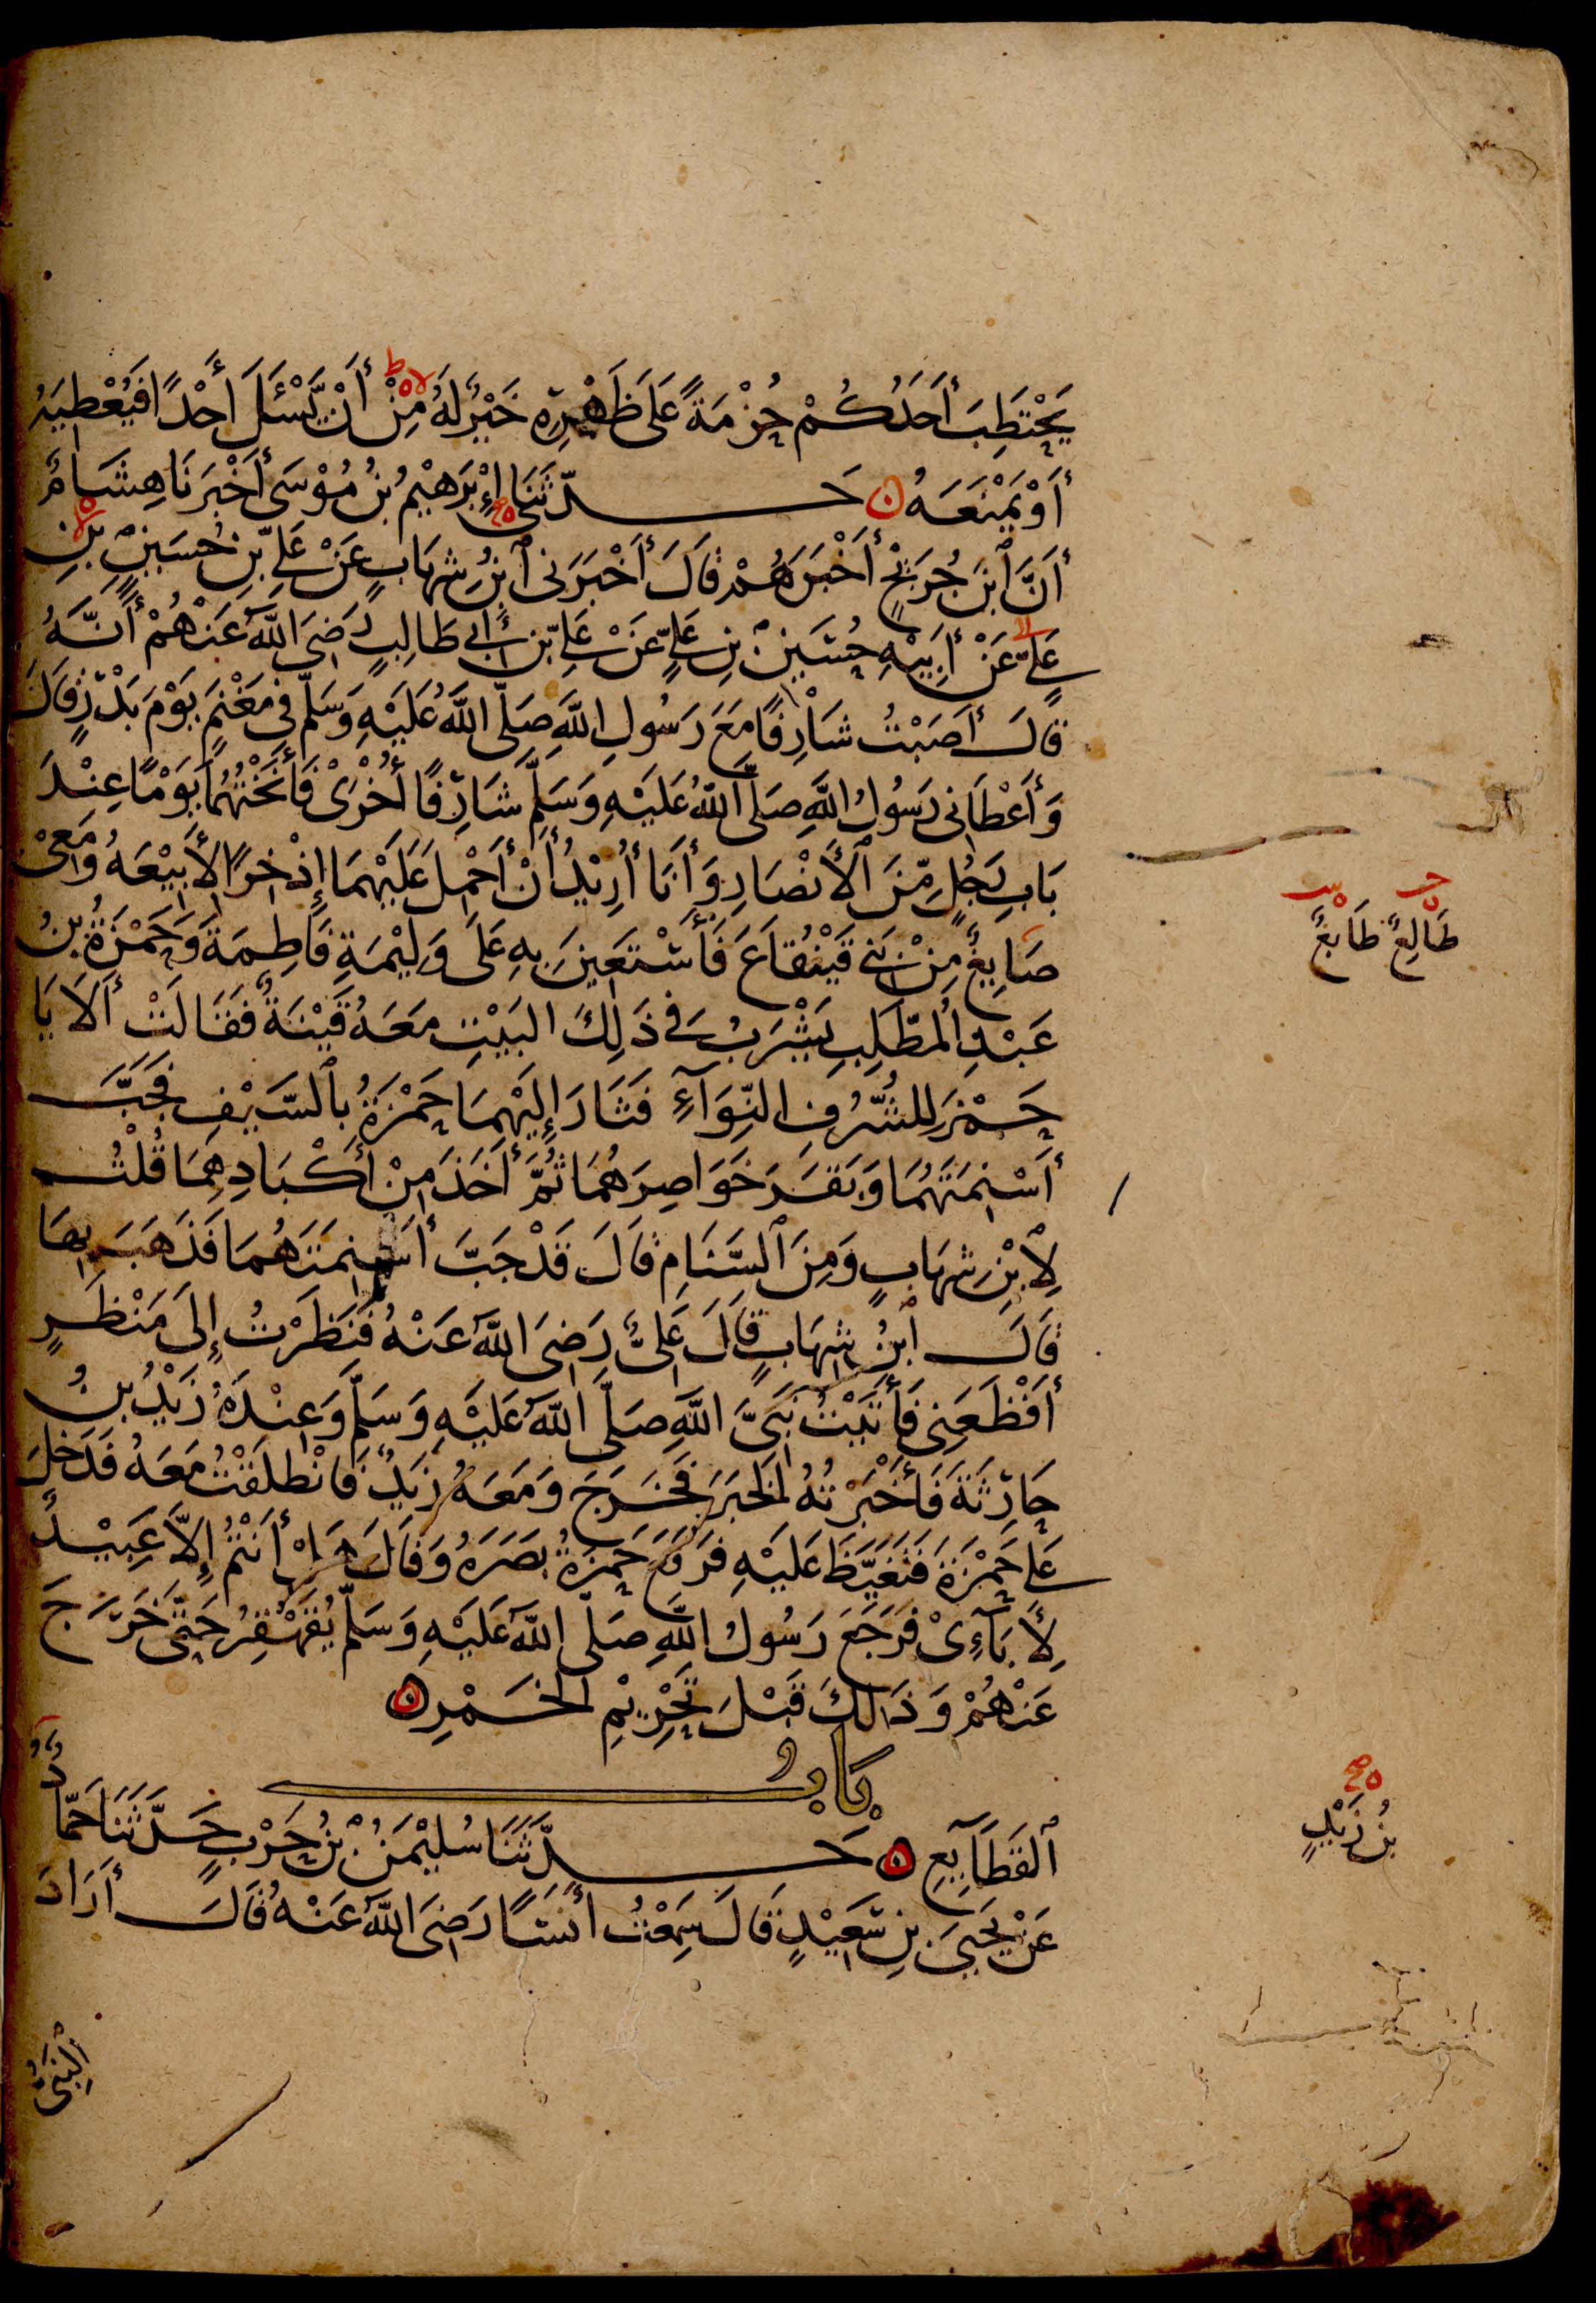 يَحْتَطِبَ أَحَدُكُمْ حُزْمَةً عَلَى ظَهْرِهِ خَيْرٌ لَهُ مِنْ أَنْ يَّسْئَلَ أَحَدًا فَيُعْطِيَهُ
أَوْ يَمْنَعَهُ حَدَّثَنَا إِبْرَهِيْمُ بْنُ مُوْسَى أَخْبَرَنَا هِشَامٌ
أَنَّ ٱبْنَ جُرَيْجٍ أَخْبَرَهُمْ قَالَ أَخْبَرَنِى ٱبْنُ شِهَابٍ عَنْ عَلِىِّ بْنِ حُسَيْنِ بْنِ
عَلِىٍّ عَنْ أَبِيْهِ حُسَيْنِ بْنِ عَلِىٍّ عَنْ عَلِىِّ بْنِ أَبِى طَالِبٍ رَضِىَ اللّٰهُ عَنْهُمْ أَنَّهُ
قَالَ أَصَبْتُ شَارِفًا مَعَ رَسُولِ اللّٰهِ صَلَّى اللّٰهُ عَلَيْهِ وَسَلَّمَ فِى مَغْنَمٍ يَوْمَ بَدْرٍ قَالَ
وَأَعْطَانِى رَسُوْلُ اللّٰهِ صَلَّى اللّٰهُ عَلَيْهِ وَسَلَّمَ شَارِفًا أُخْرَىْ فَأَنَخْتُهُمَا يَوْمًا عِنْدَ
بَابِ رَجُلٍ مِّنَ ٱلْأَنْصَارِ وَأَنَا أُرِيْدُ أَنْ أَحْمِلَ عَلَيْهِمَا إِذْخِرًا لِأَبِيْعَهُ وَمَعِىْ
صَايِغٌ مِنْ بَنِى قَيْنُقَاعَ فَأَسْتَعِيْنَ بِهِ عَلَى وَلِيْمَةِ فَاطِمَةَ وَحَمْزَةُ بْنُ
عَبْدِ الْمُطَّلِبِ يَشْرَبُ فِى ذَلِكَ البَيْتِ مَعَهُ قَيْنَةٌ فَقَالَتْ أَلَا يَا
حَمْزَ لِلشُّرُفِ النِّوَآءِ فَثَارَ إِلَيْهِمَا حَمْزَةُ بِٱلسَّيْفِ فَجَبَّ
أَسْنِمَتَهُمَا وَبَقَرَ خَوَاصِرَهُمَا ثُمَّ أَخَذَ مِنْ أَكْبَادِهِمَا قُلْتُ
لِٱبْنِ شِهَابٍ وَمِنَ ٱلسَّنَامِ قَالَ قَدْ جَبَّ أَسْنِمَتَهُمَا فَذَهَبَ بِهَا
قَالَ ٱبْنُ شِهَابٍ قَالَ عَلِىٌّ رَضِىَ اللّٰهُ عَنْهُ فَنَظَرْتُ إِلَى مَنْظَرٍ
أَفْظَعَنِى فَأَتَيْتُ نَبِىَّ اللّٰهِ صَلَّى اللّٰهُ عَلَيْهِ وَسَلَّمَ وَعِنْدَهُ زَيْدُ بْنُ
حَارِثَةَ فَأَخْبَرْتُهُ الْخَبَرَ فَخَرَجَ وَمَعَهُ زَيْدٌ فَانْطَلَقْتُ مَعَهُ فَدَخَلَ
عَلَى حَمْزَةَ فَتَغَيَّظَ عَلَيْهِ فَرَفَعَ حَمْزَةُ بَصَرَهُ وَقَالَ هَلْ أَنْتُمْ إِلَّا عَبِيْدٌ
لِأَبَآءِىْ فَرَجَعَ رَسُوْلُ اللّٰهِ صَلَّى اللّٰهُ عَلَيْهِ وَسَلَّمَ يُقَهْقِرُ حَتَّى خَرَجَ
عَنْهُمْ وَذَالِكَ قَبْلَ تَحْرِيْمِ الْخَمْرِ
بَابُ
ٱلْقَطَايِعِ حَدَّثَنَا سُلَيْمَنُ بْنُ حَرْبٍ حَدَّثَنَا حَمَّادٌ
عَنْ يَحْيَى بْنِ سَعِيْدٍ قَالَ سَمِعْتُ أَنَسًا رَضِىَ اللّٰهُ عَنْهُ قَالَ أَرَادَ
النَّبِىُّ
طَالِعٌ طَابِعٌ
بْنُ زَيْدٍ